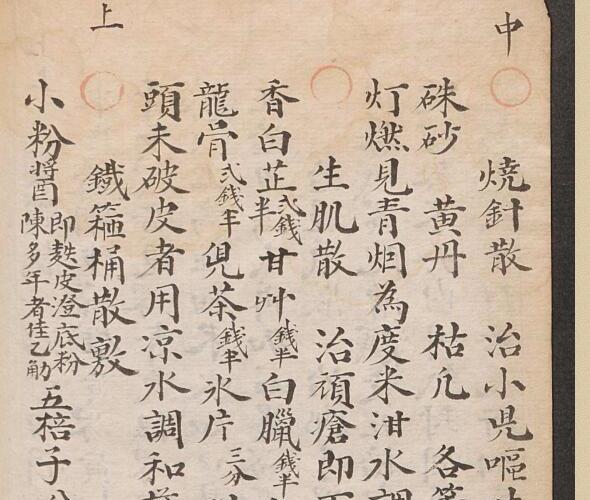 中
燒針散　治小児嘔
硃砂　黄丹　枯凡　各等
灯燃見青烟為度米泔水調
生肌散　治頑瘡即
香白芷弍錢半甘艸錢半白臘錢半
龍骨弍錢半児茶錢半氷片三分
頭未破皮者用凉水調和
上
鐵箍桶散敷
小粉醬即麩皮澄底粉陳多年者佳乙觔五棓子